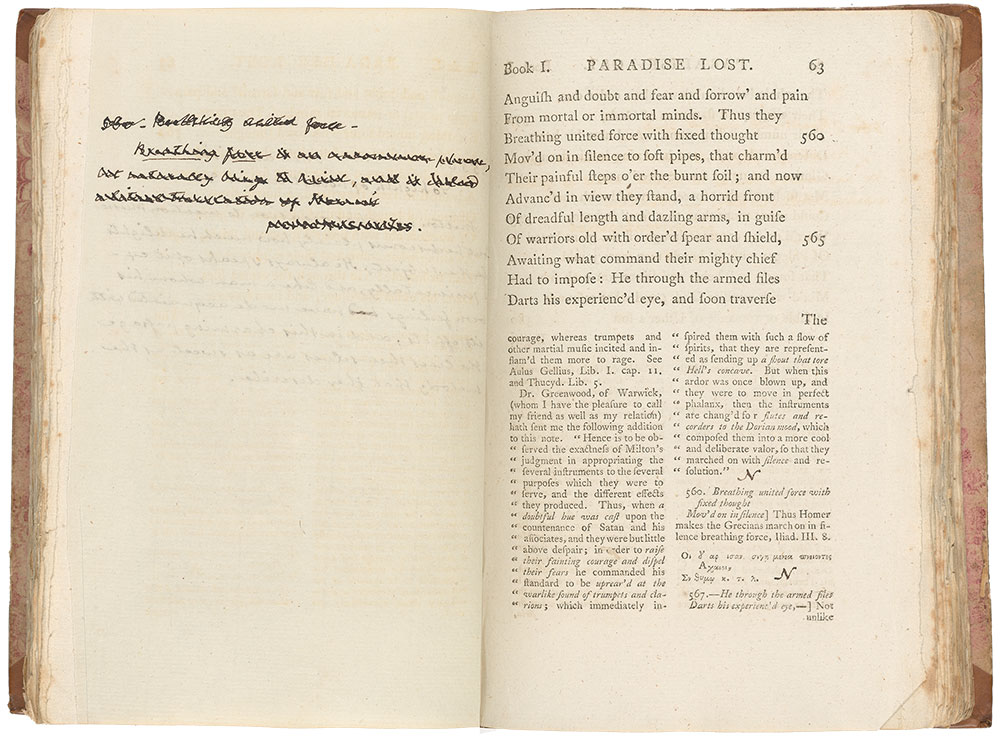 560 - Breathing united force -
Breathing force is an uncommon phrase,
Book I. PARADISE LOST. 63
Anguiſh and doubt and fear and ſorrow' and pain
From mortal or immortal minds. Thus they
Breathing united force with fixed thought 560
Mov'd on in ſilence to ſoft pipes, that charm'd
Their painful ſteps o'er the burnt ſoil; and now
Advanc'd in view they ſtand, a horrid front
Of dreadful length and dazling arms, in guiſe
Of warriors old with order'd ſpear and ſhield, 565
Awaiting what command their mighty chief
Had to impoſe: He through the armed files
Darts his experienc'd eye, and ſoon traverſe
The
courage, whereas trumpets and
other martial muſic incited and in-
flam'd them more to rage. See
Aulus Gellius, Lib. I. cap. 11.
and Thucyd. Lib. 5.
Dr. Greenwood, of Warwick,
(whom I have the pleaſure to call
my friend as well as my relation)
hath ſent me the following addition
to this note. “ Hence is to be ob-
“ ſerved the exactneſs of Milton's
“ judgment in appropriating the
“ ſeveral inſtruments to the ſeveral
“ purpoſes which they were to
“ ſerve, and the different effects
“ they produced. Thus, when a
“ doubtful hue was caſt upon the
“ countenance of Satan and his
“ aſſociates, and they were but little
“ above deſpair; in order to raiſe
“ their fainting courage and diſpel
“ their fears he commanded his
“ ſtandard to be uprear'd at the
“ warlike ſound of trumpets and cla-
“ rions; which immediately in-
“ ſpired them with ſuch a flow of
“ ſpirits, that they are repreſent-
“ ed as ſending up a ſhout that tore
“ Hell's concave. But when this
“ ardor was once blown up, and
“ they were to move in perfect
“ phalanx, then the inſtruments
“ are chang'd for flutes and re-
“ corders to the Dorian mood, which
“ compoſed them into a more cool
“ and deliberate valor, ſo that they
“ marched on with ſilence and re-
“ ſolution.” N
560. Breathing united force with
fixed thought
Mov'd on in ſilence] Thus Homer
makes the Grecians march on in ſi-
lence breathing force, Iliad. III. 8.
κ. τ. λ. N
567.—He through the armed files
Darts his experienc'd eye,—] Not
unlike